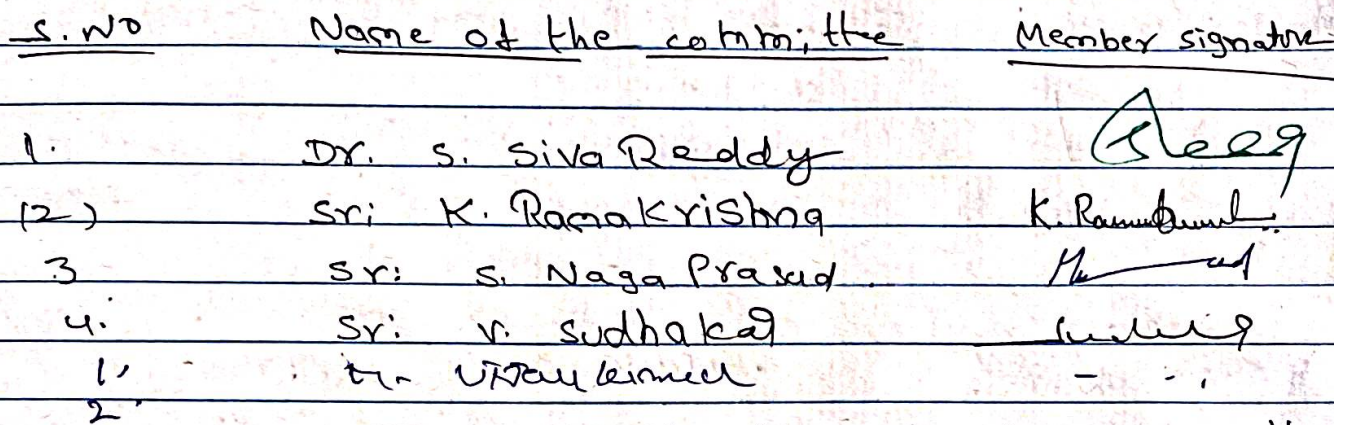 S. No Name of the committee Member signature
1. Dr. S. Siva Reddy
(2) Sri K. Ramakrishna K.
3 Sri S. Naga Prasad.
4. Sri V. Sudhakar
1,
2